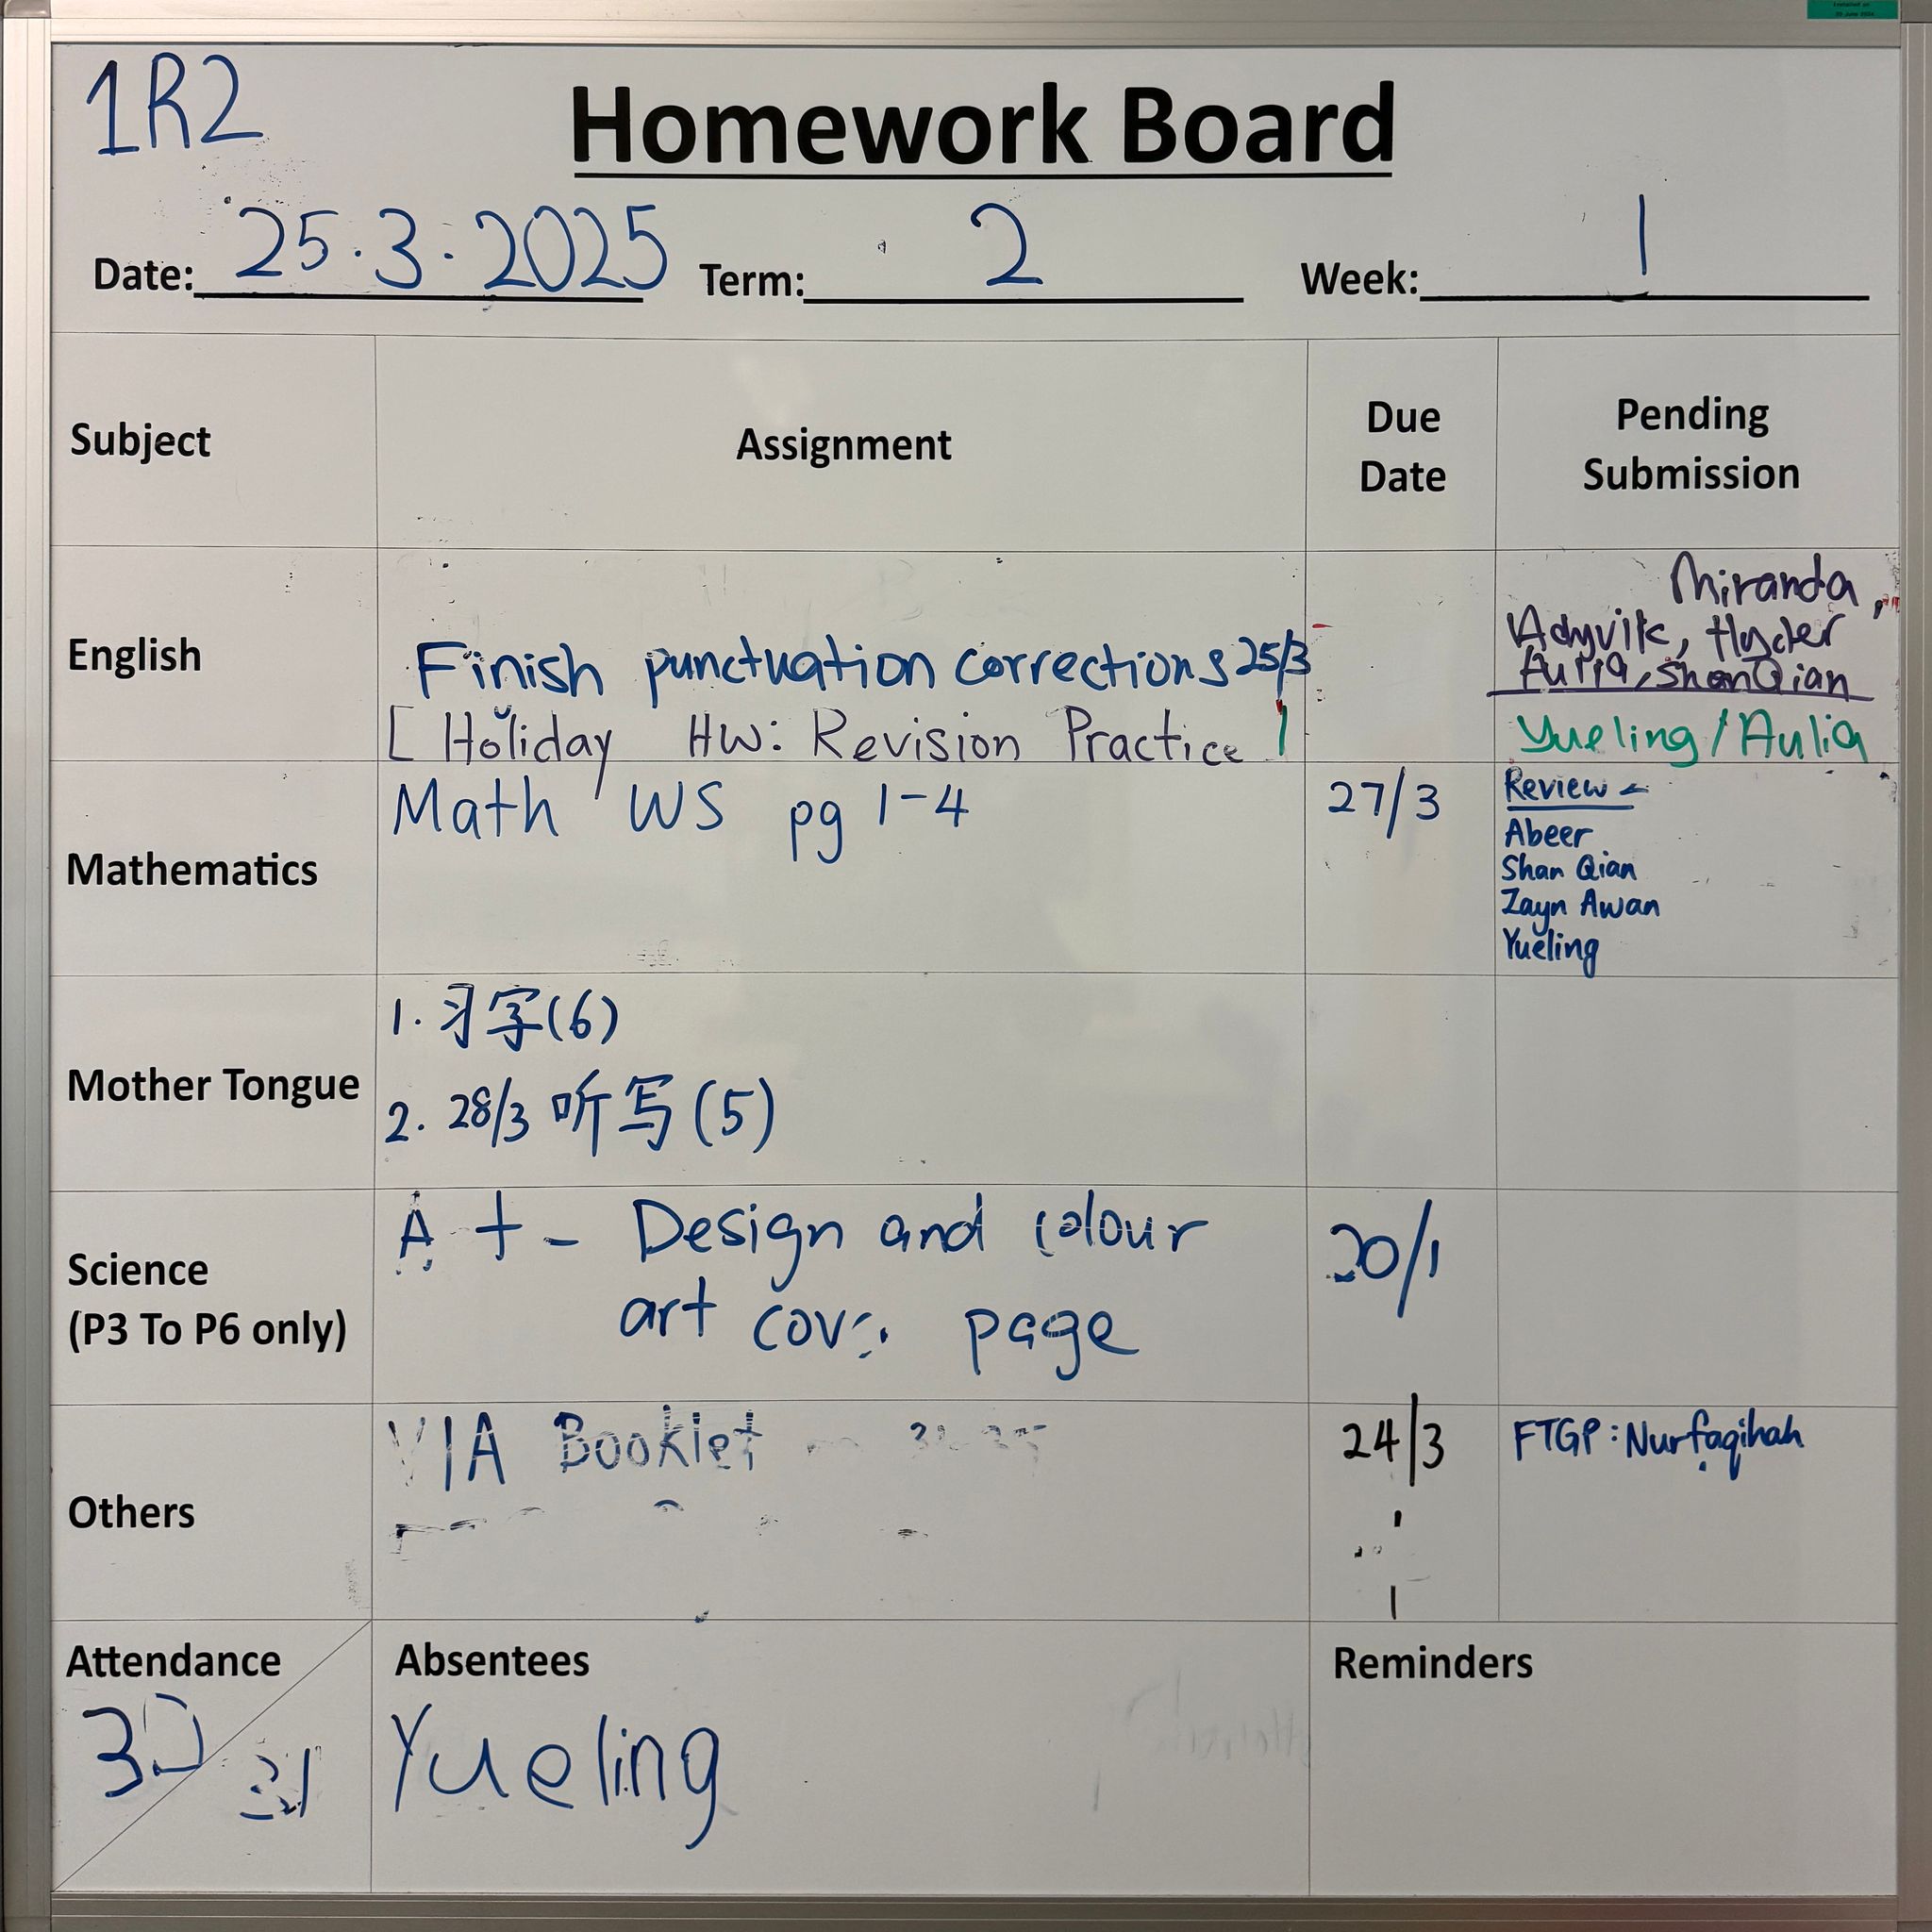 1R2
Homework Board
Date: 25.3.2025 Term: 2 Week: 1
Subject Assignment Due Date Pending Submission
English
Finish punctuation corrections 25/3
[Holiday HW: Revision Practice]
Miranda,
Adyvik, Hyder
Aulia, ShanQian
Yueling/Aulia
Mathematics
Math WS pg 1-4
27/3
Review
Abeer
Shan Qian
Zayn Awan
Yueling
Mother Tongue
1. 习字(6)
2. 28/3 听写(5)
Science
(P3 To P6 only)
Design and colour
art page
20/1
Others
VIA Booklet
24/3
FTGP: Nurfaqihah
Attendance
30
31
Absentees
Yueling
Reminders